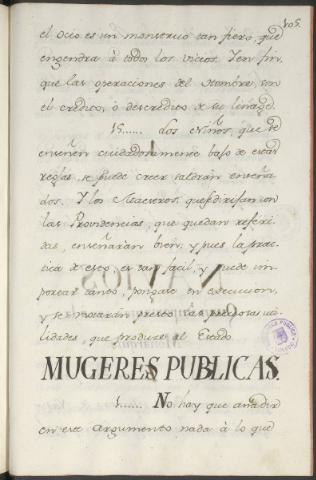 105.
el Ocio es un monstruo tan fiero, que
engendra à todos los vicios. Y en fin,
que las operaciones del Hombre, son
el crédito, ò descredito de su linage.
15...... Los Niños, que se
enseñen cuidadosamente bajo de estas
reglas, se puede creer saldràn enseña-
dos. Y los Maestros, que dirijan con
las Providencias, que quedan referi-
das, enseñaràn bien; y pues la prac-
tica de esto, es tan facil, y puede im-
portar tanto, pongase en execucion,
y se notaràn presto las preciosas uti-
lidades, que produce al Estado.
MUGERES PUBLICAS.
1...... No hay que añadir
en este argumento nada à lo que